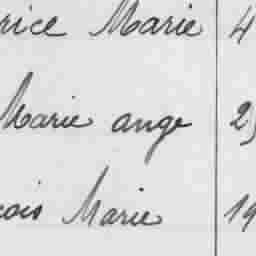 rice Marie 4
Marie ange 25
cois Marie 19